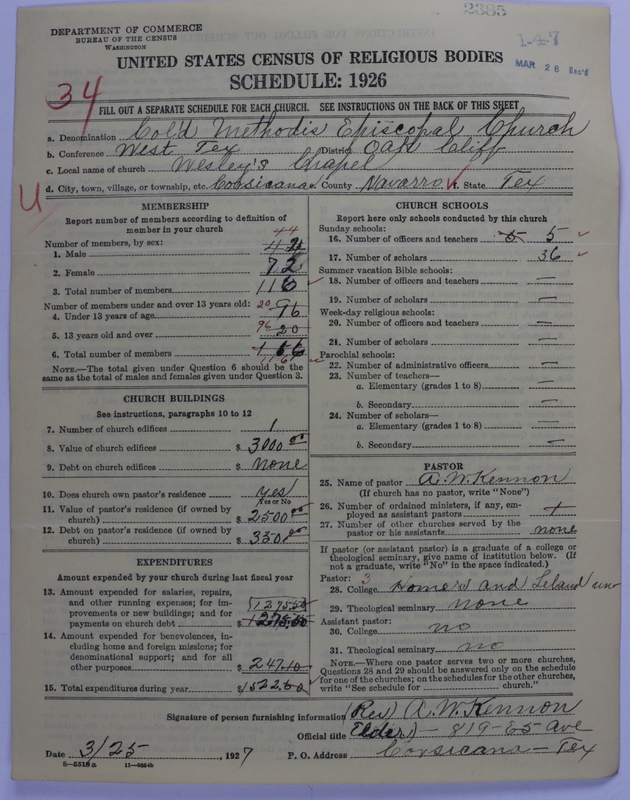 2385
1-47
MAR 28 Rec'd
DEPARTMENT OF COMMERCE
BUREAU OF THE CENSUS
WASHINGTON
UNITED STATES CENSUS OF RELIGIOUS BODIES
SCHEDULE: 1926
34
FILL OUT A SEPARATE SCHEDULE FOR EACH CHURCH. SEE INSTRUCTIONS ON THE BACK OF THIS SHEET
a. Denomination Cold Methodis Episcopal Church
b. Conference West Tex District Oak Cliff
c. Local name of church Wesley's Chapel
d. City, town, village, or township, etc. Corsicana e. County Navarro f. State Tex
U
MEMBERSHIP
Report number of members according to definition of
member in your church
Number of members, by sex: 44
1. Male
2. Female 72
3. Total number of members 116
Number of members under and over 13 years old:
4. Under 13 years of age 20 96
5. 13 years old and over 96 20
6. Total number of members 116
NOTE.—The total given under Question 6 should be the
same as the total of males and females given under Question 3.
CHURCH BUILDINGS
See instructions, paragraphs 10 to 12
7. Number of church edifices 1
8. Value of church edifices $ 3000 00
9. Debt on church edifices $ none
10. Does church own pastor's residence yes
Yes or No
11. Value of pastor's residence (if owned by
church) $ 2500 00
12. Debt on pastor's residence (if owned by
church) $ 350 00
EXPENDITURES
Amount expended by your church during last fiscal year
13. Amount expended for salaries, repairs,
and other running expenses; for im-
provements or new buildings; and for
payments on church debt $ 1275.50
14. Amount expended for benevolences, in-
cluding home and foreign missions; for
denominational support; and for all
other purposes $ 247.10
15. Total expenditures during year $ 1522.60
CHURCH SCHOOLS
Report here only schools conducted by this church
Sunday schools:
16. Number of officers and teachers 5 5
17. Number of scholars 36
Summer vacation Bible schools:
18. Number of officers and teachers —
19. Number of scholars —
Week-day religious schools:
20. Number of officers and teachers —
21. Number of scholars —
Parochial schools:
22. Number of administrative officers —
23. Number of teachers—
a. Elementary (grades 1 to 8) —
b. Secondary —
24. Number of scholars—
a. Elementary (grades 1 to 8) —
b. Secondary —
PASTOR
25. Name of pastor A. W. Kennon
(If church has no pastor, write "None")
26. Number of ordained ministers, if any, em-
ployed as assistant pastors
27. Number of other churches served by the
pastor or his assistants none
If pastor (or assistant pastor) is a graduate of a college or
theological seminary, give name of institution below. (If
not a graduate, write "No" in the space indicated.)
Pastor: 3
28. College Home's and Leland univ
29. Theological seminary none
Assistant pastor:
30. College no
31. Theological seminary no
NOTE.—Where one pastor serves two or more churches,
Questions 28 and 29 should be answered only on the schedule
for one of the churches; on the schedules for the other churches,
write "See schedule for church."
Signature of person furnishing information (Rev) A. W. Kennon
Official title Elder) — 819-E 5 Ave
Date 3/25, 1927 P. O. Address Corsicana — Tex